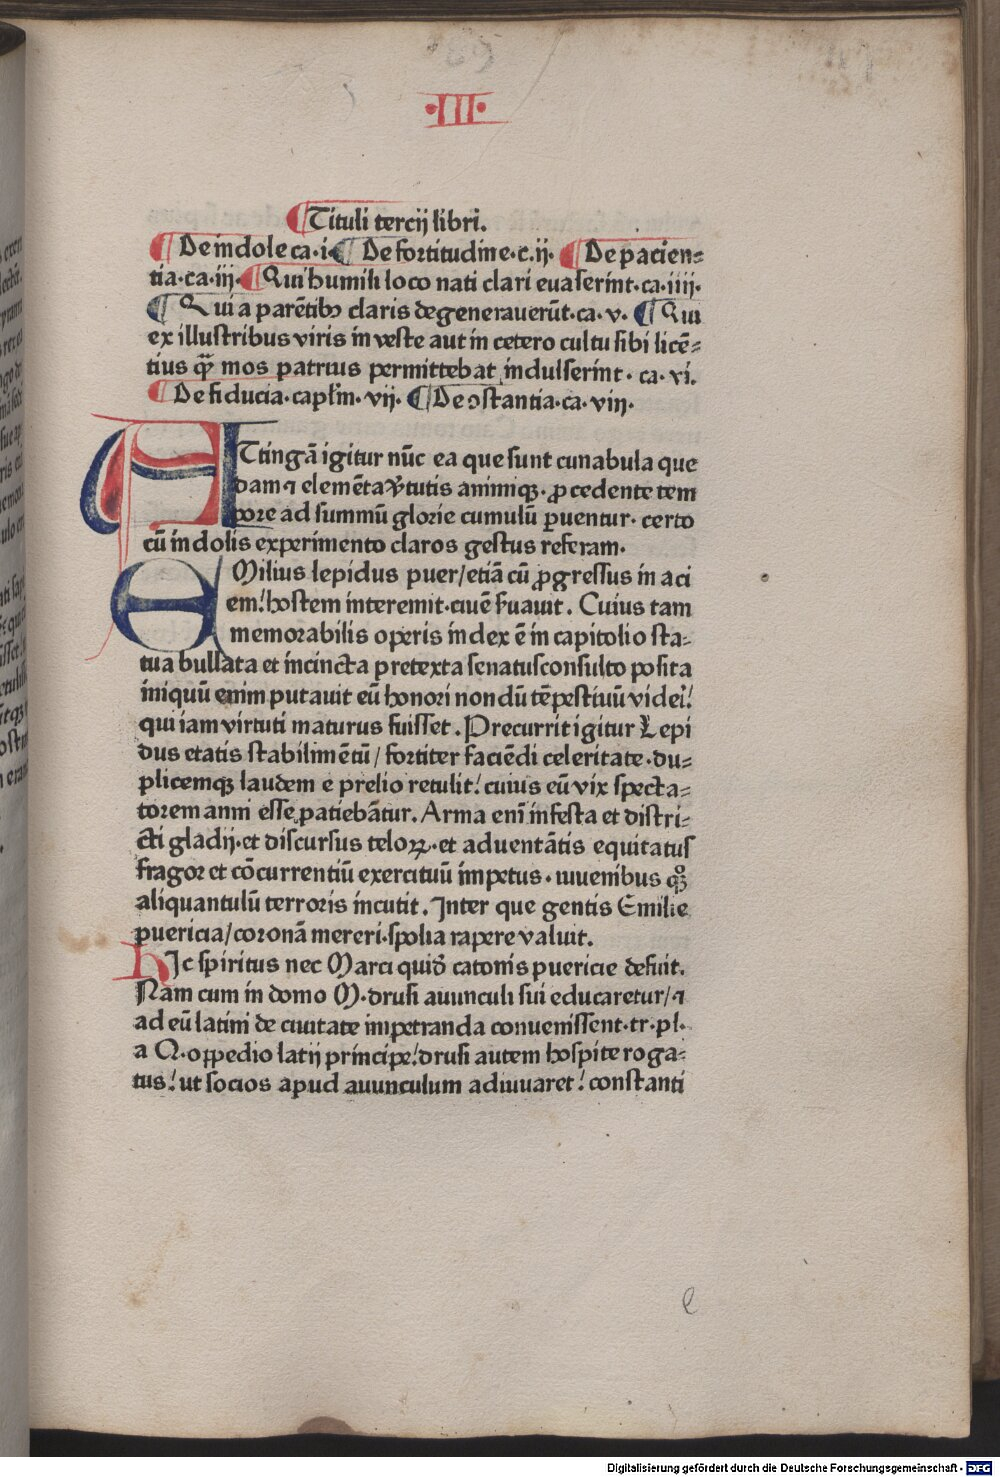 ·III·
¶Tituli tercij libri.
¶ De indole ca·i· ¶ De fortitudine·c·ij· ¶ De pacien⸗
tia·ca·iij· ¶ Qui humili loco nati clari euaserint·ca·iiij·
¶ Qui a parẽtibꝰ claris degenerauerũt·ca·v· ¶ Qui
ex illustribus viris in veste aut in cetero cultu sibi licẽ⸗
tius q̃ mos patrius permittebat indulserint· ca·vi·
¶ De fiducia·capl̃m·vij· ¶ De ꝯstantia·ca·viij·
ATtingã igitur nũc ea que sunt cunabula que
dam ⁊ elemẽta v̓tutis animiqꝫ· ꝓcedente tem
pore ad summũ glorie cumulũ ꝑuentur· certo
cũ indolis experimento claros gestus referam·
EMilius lepidus puer/etiã cũ ꝓgressus in aci
em! hostem interemit·ciuẽ s̓uauit. Cuius tam
memorabilis operis index ẽ in capitolio sta⸗
tua bullata et incincta pretexta senatusconsulto posita
iniquũ enim putauit eũ honori nondũ tẽpestiuũ videi!
qui iam virtuti maturus fuisset. Precurrit igitur Lepi
dus etatis stabilimẽtũ/ fortiter faciẽdi celeritate·du⸗
plicemqꝫ laudem e prelio retulit! cuius eũ vix specta⸗
torem anni esse patiebãtur. Arma enĩ infesta et distri⸗
cti gladij·et discursus teloꝝ·et aduentãtis equitatus
fragor et cõcurrentiũ exercituũ impetus· iuuenibus qꝫ
aliquantulũ terroris incutit. Inter que gentis Emilie
puericia/coronã mereri·spolia rapere valuit.
hIc spiritus nec Marci quidẽ catonis puericie defuit.
Nam cum in domo M·drusi auunculi sui educaretur/⁊
ad eũ latini de ciuitate impetranda conuenissent·tr·pl·
a Q·oppedio latij principe! drusi autem hospite roga⸗
tus! ut socios apud auunculum adiuuaret! constanti
e
Digitalisierung gefördert durch die Deutsche Forschungsgemeinschaft - DFG